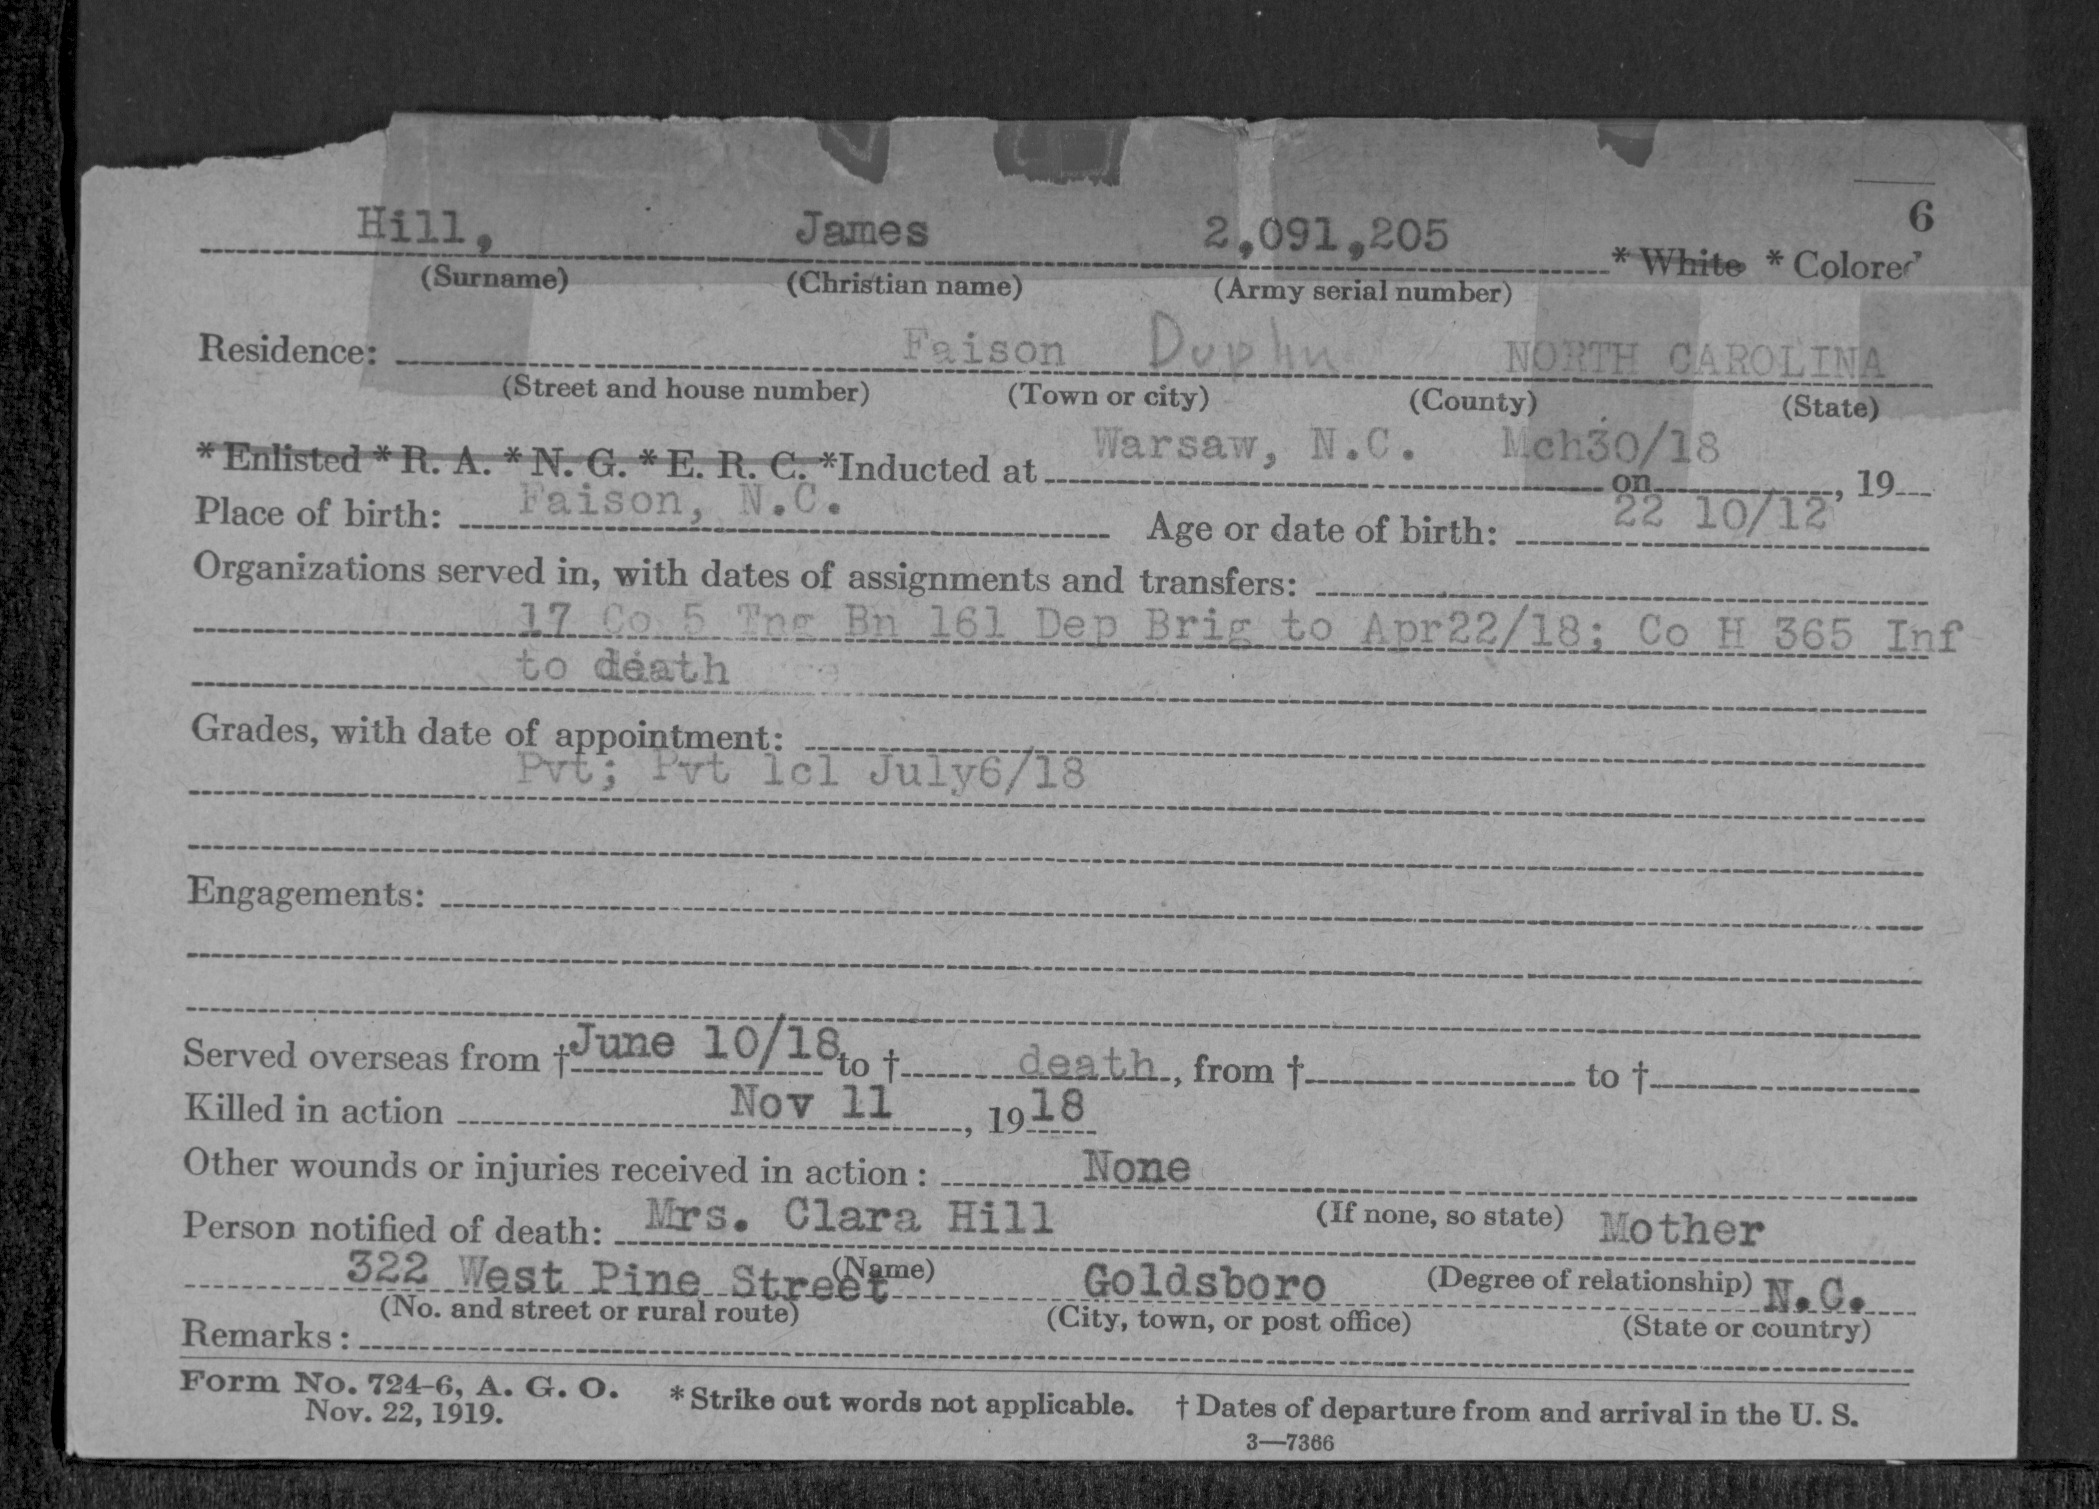 6
Hill, James 2,091,205 * White * Colored
(Surname) (Christian name) (Army serial number)
Residence: Faison Duplin NORTH CAROLINA
(Street and house number) (Town or city) (County) (State)
* Enlisted * R. A. * N. G. * E. R. C. *Inducted at Warsaw, N.C. on Mch30/18, 19
Place of birth: Faison, N.C. Age or date of birth: 22 10/12
Organizations served in, with dates of assignments and transfers:
17 Co 5 Tng Bn 161 Dep Brig to Apr22/18; Co H 365 Inf
to death
Grades, with date of appointment:
Pvt; Pvt 1cl July6/18
Engagements:
Served overseas from † June 10/18 to † death, from † to †
Killed in action Nov 11, 1918
Other wounds or injuries received in action: None
(If none, so state)
Person notified of death: Mrs. Clara Hill Mother
(Name) (Degree of relationship)
322 West Pine Street Goldsboro N.C.
(No. and street or rural route) (City, town, or post office) (State or country)
Remarks:
Form No. 724-6, A. G. O. * Strike out words not applicable. † Dates of departure from and arrival in the U. S.
Nov. 22, 1919.
3—7366